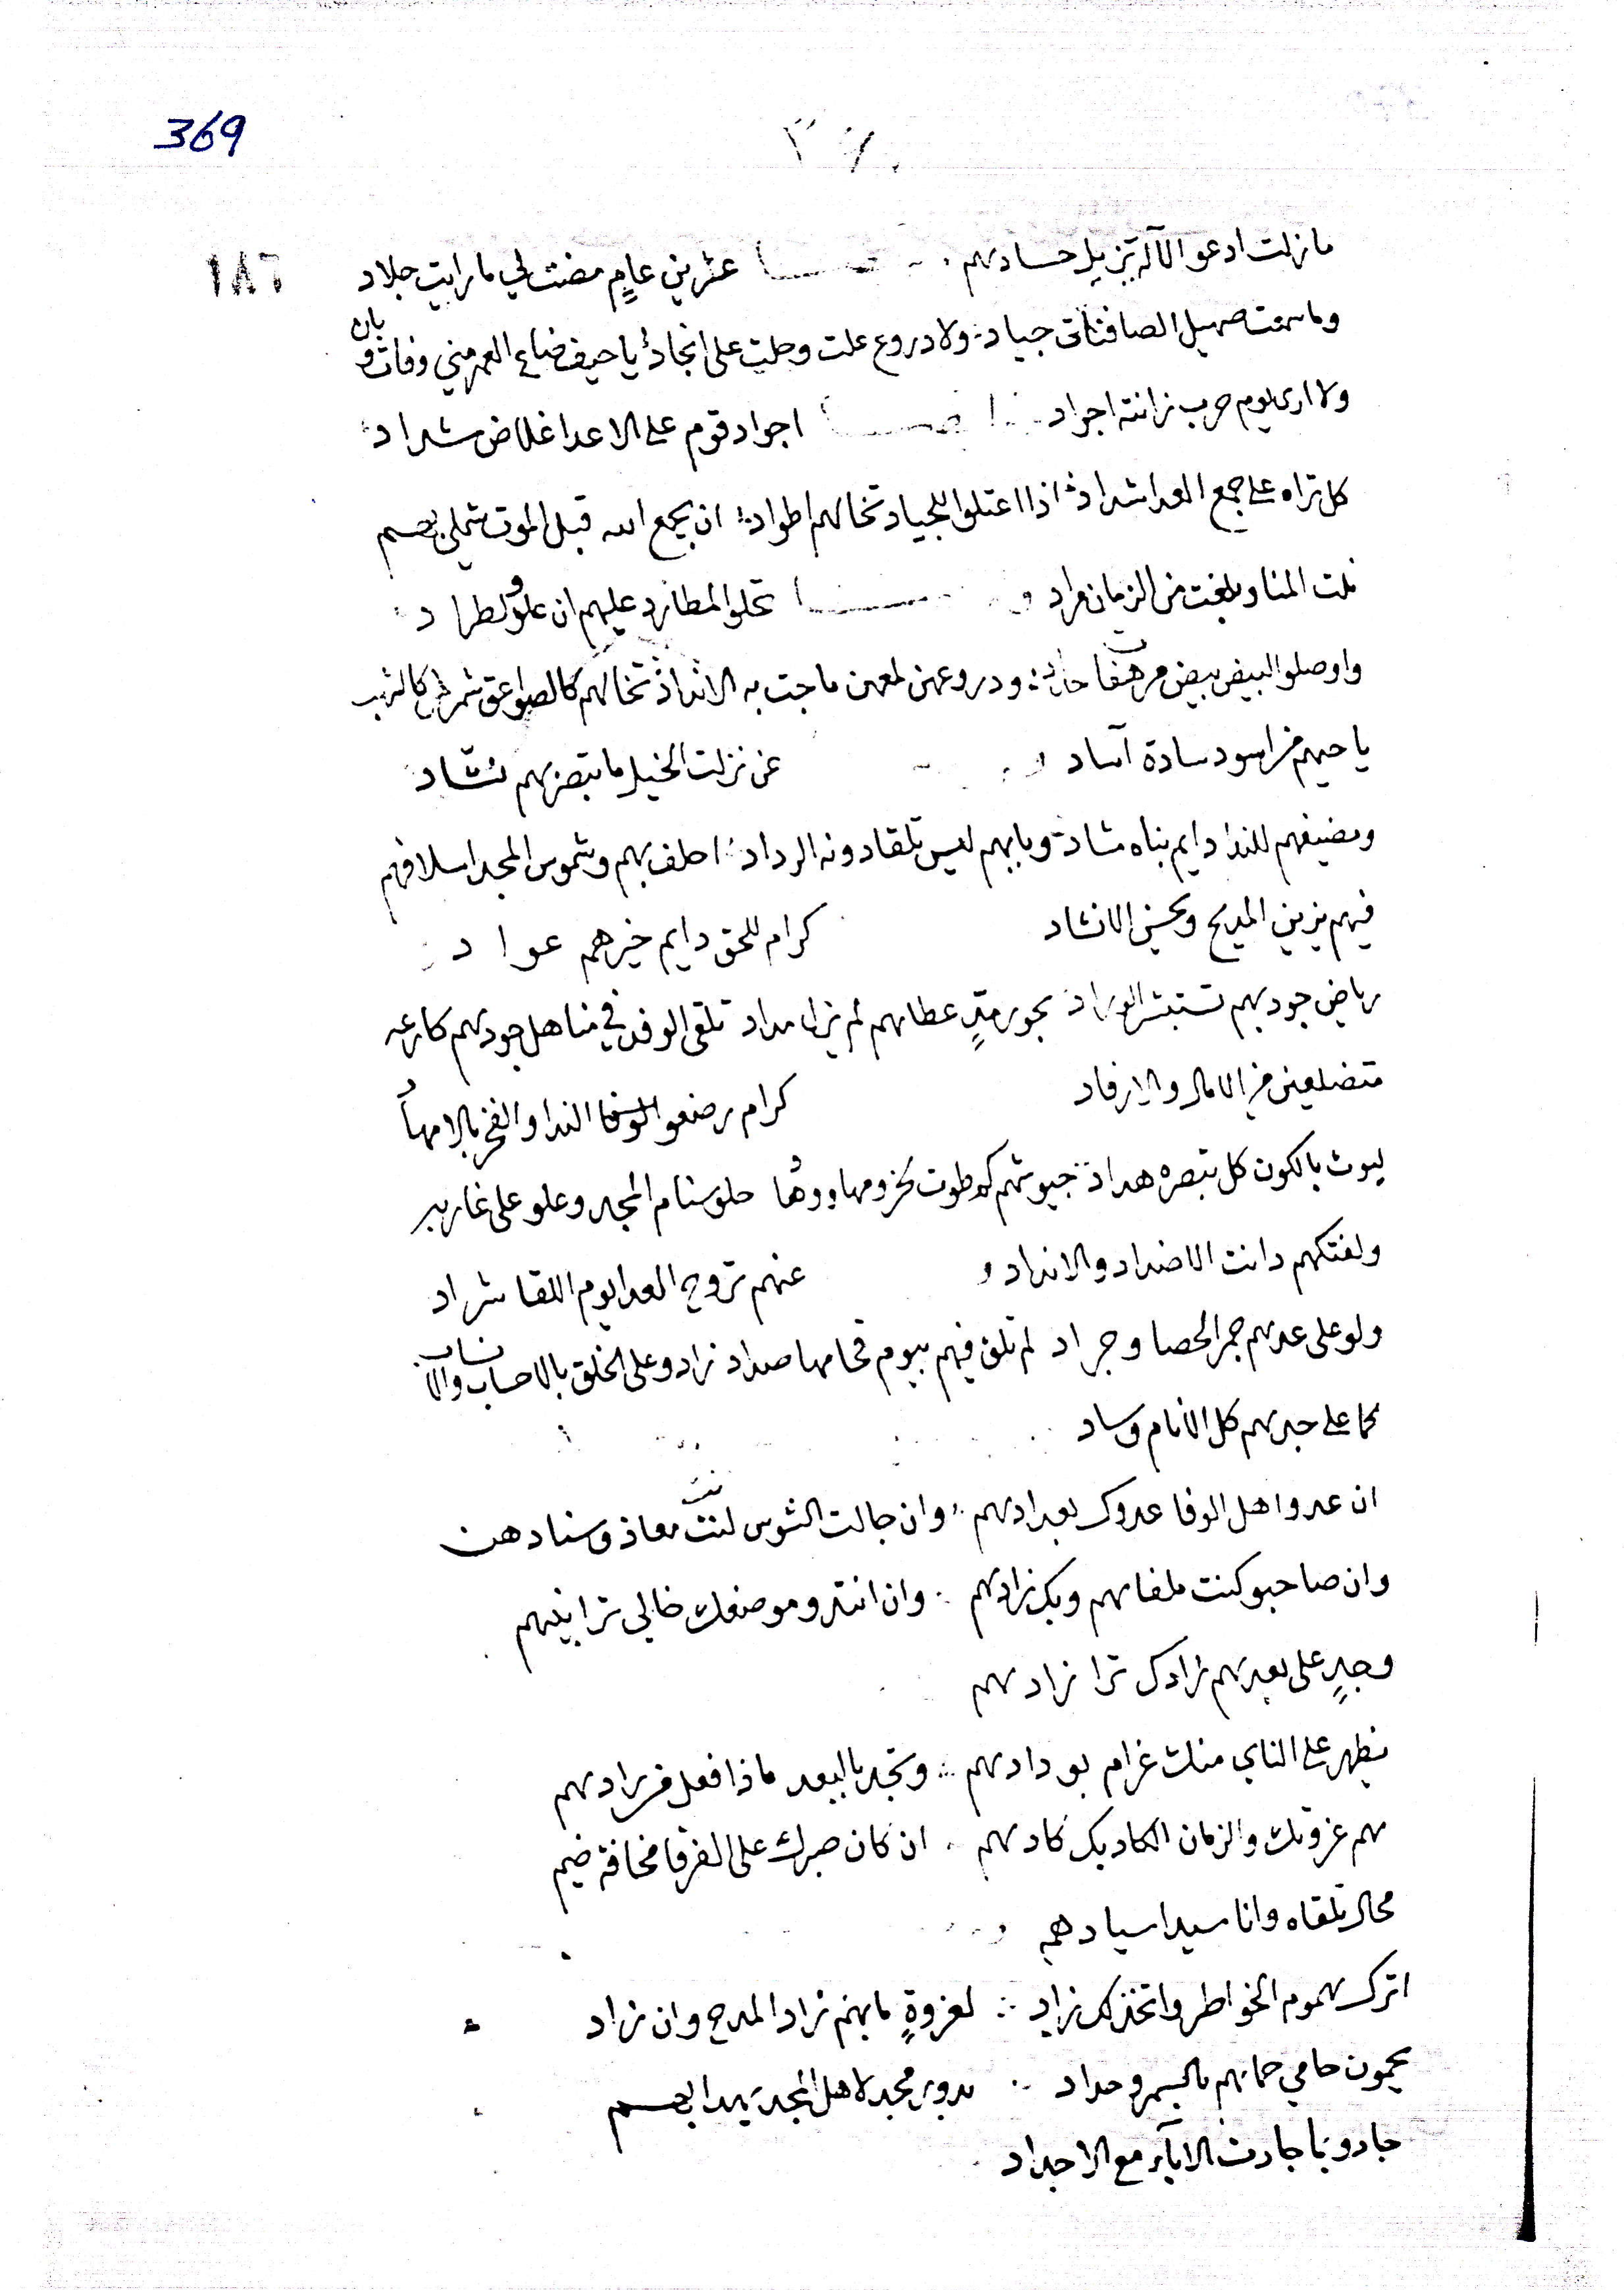 369
٣٦٠
١٨٦
مازلت ادعو الآله تزيل حسادهم عشرين عامٍ مضت لي ما رايت جلاد
وما سمعت صهيل الصافنات جياد ولا دروع علت وحلت على انجاد يا حيف ضاع العمر مني وفات وبان
ولا ارى يوم حرب زانته اجواد اجواد قوم على الاعدا غلاض شداد
كل تراه على جمع العدا شداد اذا اعتلوا للجياد تخالهم اطواد ان يجمع الله قبل الموت شملي بهم
نلت المنا وبلغت من الزمان مراد تحلو المطارد عليهم ان علو لطراد
واوصلوا البيض ببيض مرهفات حداد ودروعهن لمعهن ما جت به الانداد تخالهم كالصواعق كالشهب
يا حيهم من اسود سادة آساد عن نزلت الخيل ما تبصر بهم نشاد
ومضيفهم للندا دايم بناه مشاد وبابهم ليس تلقا دونه الرداد احلف بهم وشموس المجد اسلافهم
فيهم يزين المديح ويحسن الانشاد كرام للحق دايم خيرهم عواد
رياض جودهم تستبشر الوراد بحور مدٍ عطاهم لم يزل مداد تلقى الوفد في مناهل جودهم كارعه
متضلعين من الامال والارفاد كرام رضعو الوفا الندا والفخر بالامها
ليوث بالكون كل تبصره هداد جيوشهم كم طوت حلو سنام المجد وعلو على غاربه
ولفتكهم دانت الاضداد والانداد عنهم تروح العدا يوم اللقا شراد
ولو على عدهم جمر الحصا وجراد لم تلق فيهم بيوم صداد زادو على الخلق بالاحساب والانساب
كما على جدهم كل الانام وساد
ان عدوا اهل الوفا عدوك بعدادهم وان جالت الشوس لنت معاذ وسنادهن
وان صاحبو كنت ملفاهم وبك زادهم وان انتدو موضعك خالي ترا بينهم
وجدٍ على بعدهم زادك ترا زادهم
يظهر على الناي منك غرام بودادهم وتجد بالبعد ماذا فعل من رادهم
هم عزوتك والزمان الكاد بك كادهم ان كان صبرك على الفرقا مخافة ضيم
محال تلقاه وانا سيد اسيادهم
اترك هموم الخواطر واتخذ لك زاد لعزوةٍ ما بهم زاد المدح وان زاد
يحمون حامي حماهم بالسمر وحداد بدور مجد لاهل المجد يهدا بهم
جادو بما جادت الابآء مع الاجداد